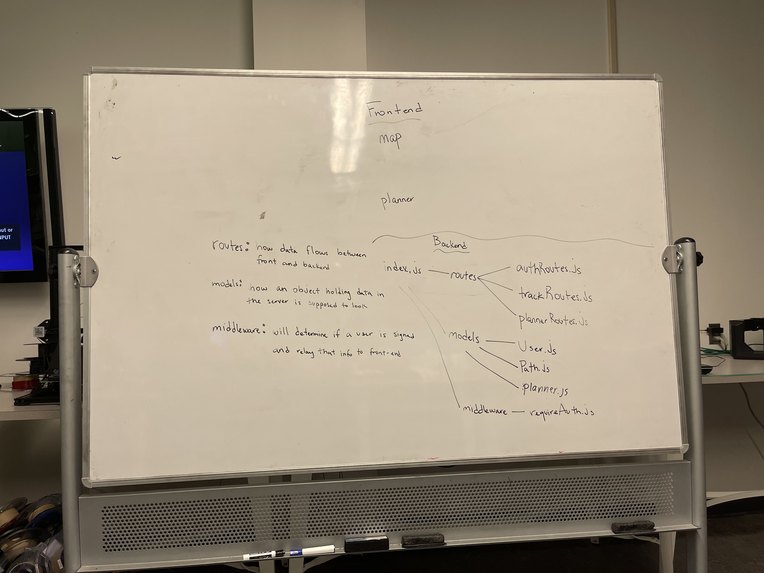 Frontend
map
planner
Backend
routes: how data flows between
front and backend
models: how an object holding data in
the server is supposed to look
middleware: will determine if a user is signed
and relay that info to front-end
index.js
routes
authRoutes.js
trackRoutes.js
plannerRoutes.js
models
User.js
Path.js
planner.js
middleware
requireAuth.js